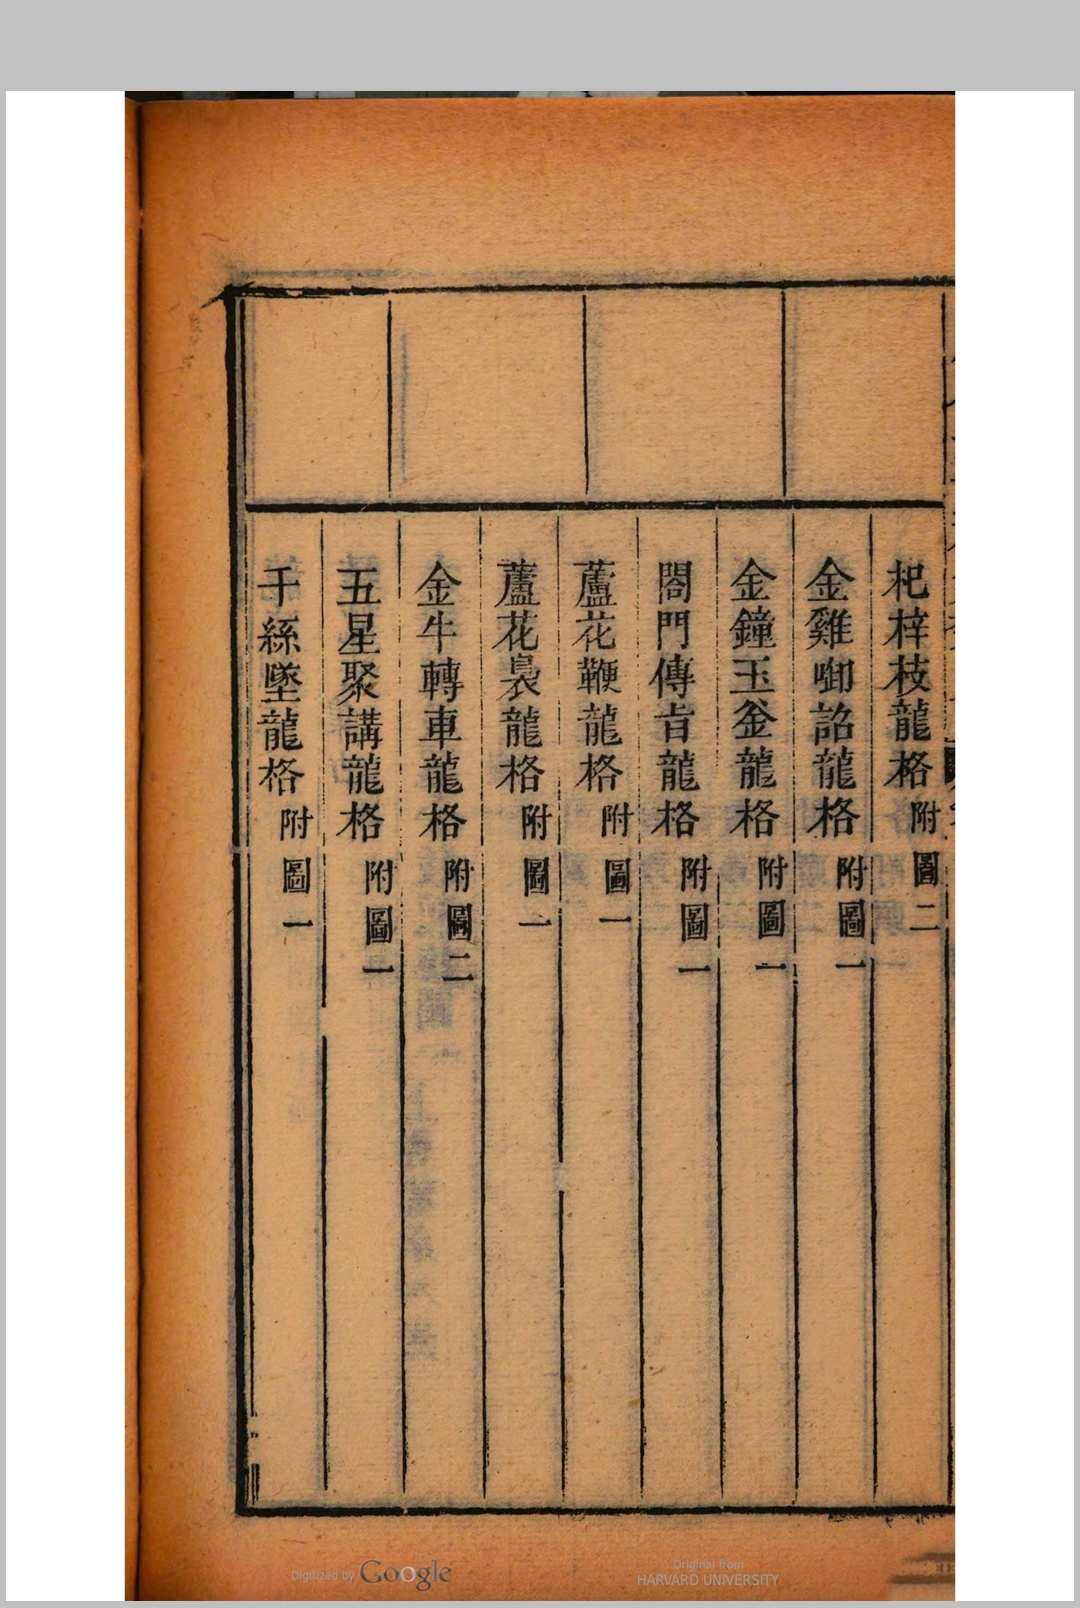 杞梓枝龍格附圖二
金雞啣詔龍格附圖一
金鐘玉釜龍格附圖一
閤門傳旨龍格附圖一
蘆花鞭龍格附圖一
蘆花裊龍格附圖一
金牛轉車龍格附圖二
五星聚講龍格附圖一
千絲墜龍格附圖一
Digitized by Google
Original from
HARVARD UNIVERSITY